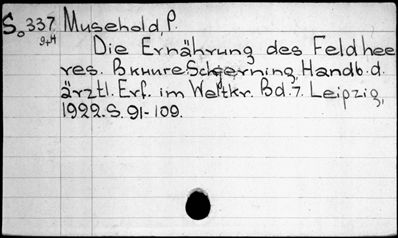 S.337 Musehold, P.
9+H
Die Ernährung des Feldhee
res. В книге Scherning, Handb. d.
ärztl. Erf. im Weltkr. Bd. 7. Leipzig,
1922. S. 91-109.